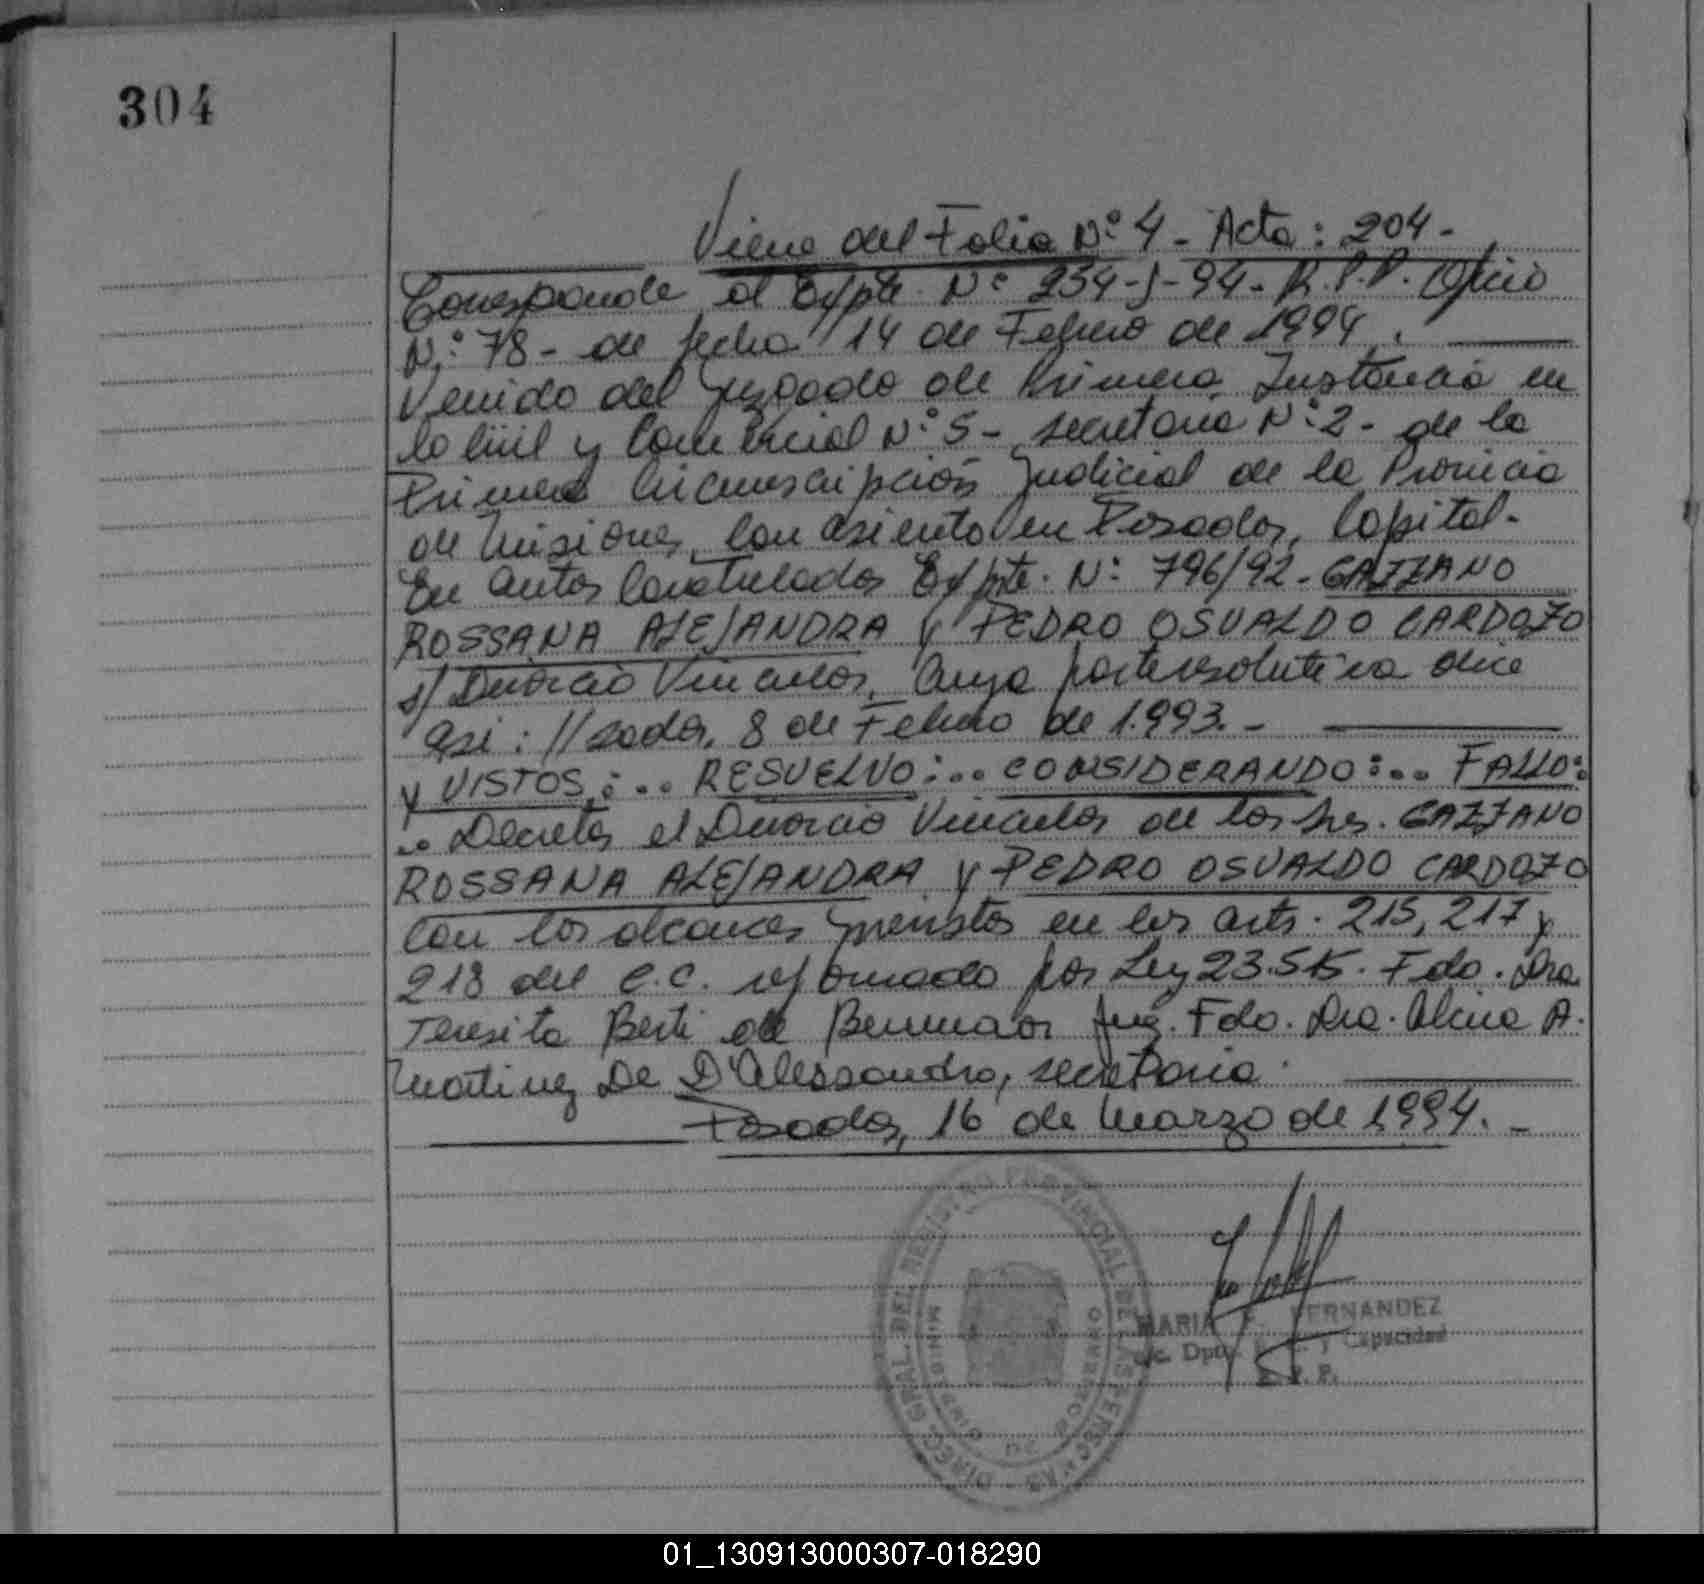 304
Viene del Folio Nº 4 - Acta: 204 -
Corresponde al Expte. Nº 234-J-94- R.P.P. Oficio
Nº: 78 - de fecha 14 de Febrero de 1994.
Venido del Juzgado de Primera Instancia en
lo Civil y Comercial Nº 5 - secretaria Nº 2 - de la
Primera Circunscripción Judicial de la Provincia
de Misiones, con asiento en Posadas, Capital.
En autos Caratulados Expte. Nº: 796/92 - GAZZANO
ROSSANA ALEJANDRA Y PEDRO OSVALDO CARDOZO
s/ Divorcio Vincular, Cuya parte resolutiva dice
asi: //sadas, 8 de Febrero de 1.993. -
y VISTOS: .. RESUELVO: .. CONSIDERANDO: .. FALLO:
.. Decretar el Divorcio Vincular de los Sres. GAZZANO
ROSSANA ALEJANDRA y PEDRO OSVALDO CARDOZO
Con los alcances previstos en los arts. 215, 217 y
218 del C.C. reformado por Ley 23.515. Fdo. Dra
Teresita Berti de Benmaor Juez. Fdo. Dra. Alcira A.
Martinez De D'Alessandro, secretaria.
Posadas, 16 de Marzo de 1994. -
DIREC. GRAL. DEL REGISTRO PROVINCIAL DE LAS PERSONAS
MARIA FERNANDEZ
Capacidad
01_130913000307-018290